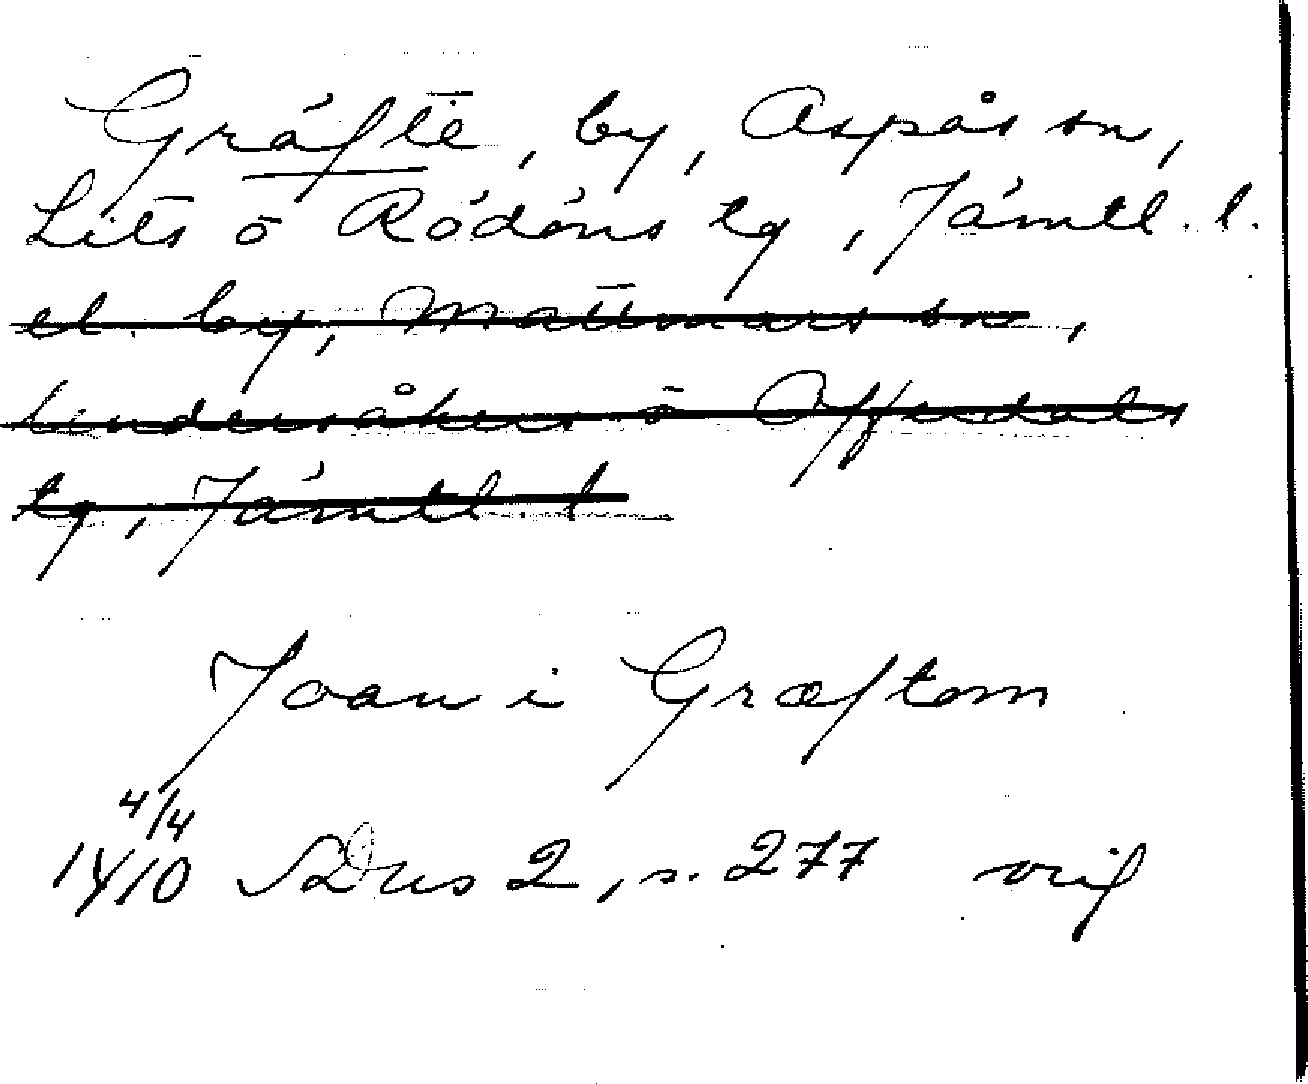 Gräfte, by, Aspås sn,
Lits o Rödöns tg, Jämtl. l.
el. by, Mattmars sn,
Undersåkers o Offerdals
tg, Jämtl l
Joan i Græftom
4/4
1410 SDns 2, s. 277 orig